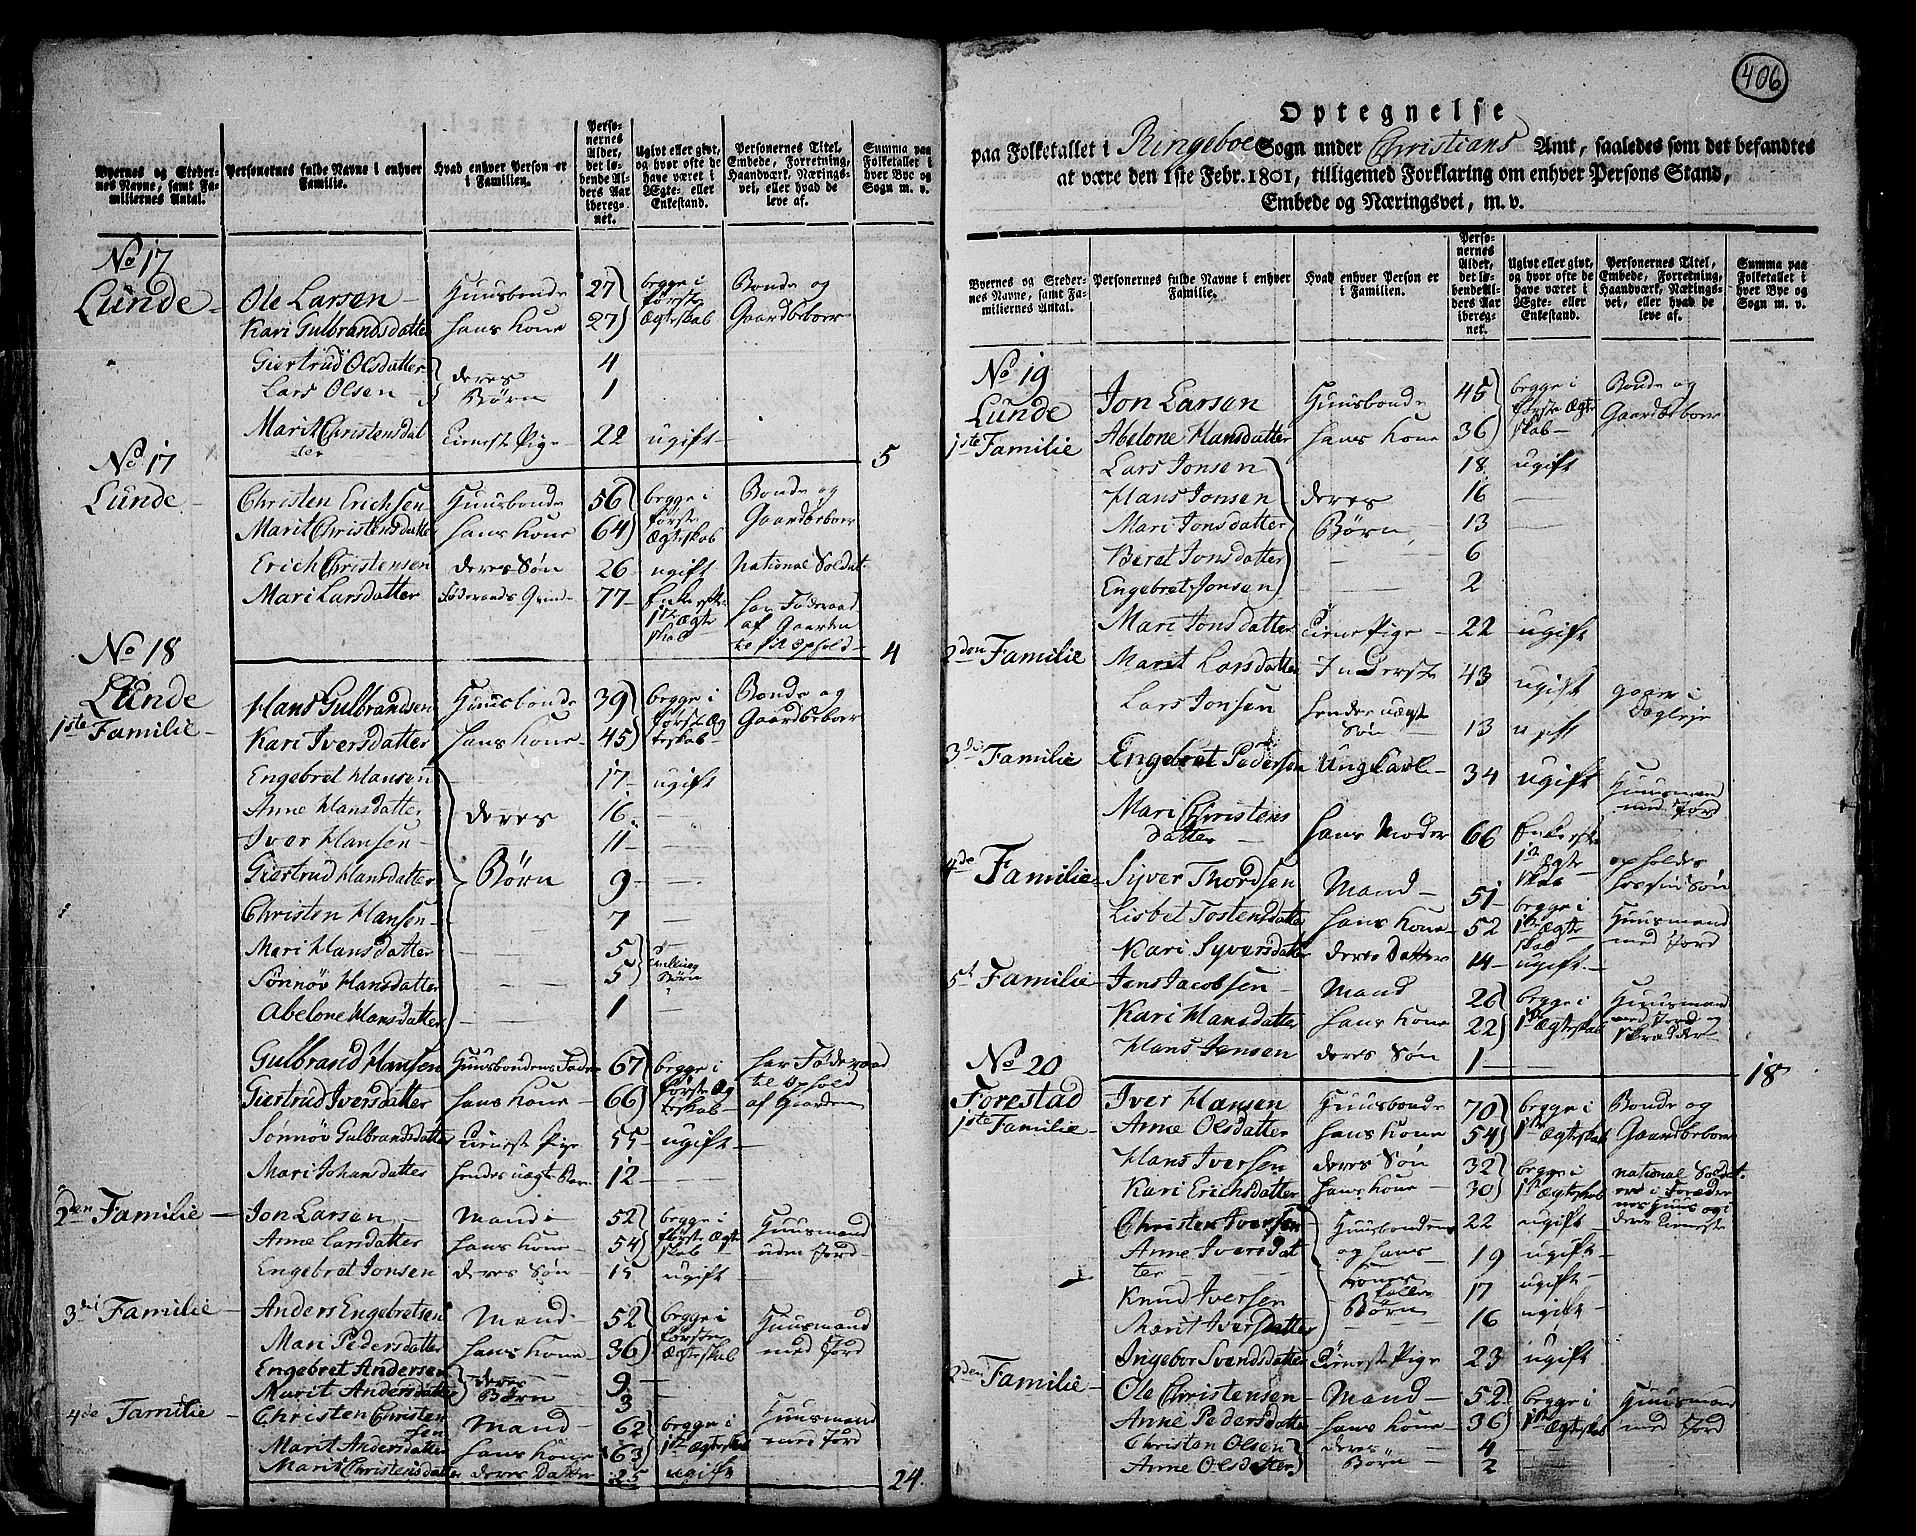 Byernes og Stedernes Navne, samt Familiernes Antal.
Personernes fulde Navne i enhver Familie.
Hvad enhver Person er i Familien.
Personernes Alder, det løbende Alders Aar iberegnet.
Ugivt eller givt, og hvor ofte de have været i Ægte- eller Enkestand.
Personernes Titel, Embede, Forretning, Haandværk, Næringsvei, eller hvad de leve af.
Summa paa Folketallet i hver Bye og Sogn m. v.
No 17
Lunde
Ole Larsen Huusbonde 27 begge i første Ægteskab Bonde og Gaardbeboer
Kari Gulbrandsdatter hans Kone 27
Giertrud Olsdatter deres Børn 4
Lars Olsen 1
Marit Christensdatter Tienestpige 22 ugift
5
No 17
Lunde
Christen Erichsen Huusbonde 56 begge i første Ægteskab Bonde og Gaardbeboer
Marit Christensdatter hans Kone 64
Erich Christensen deres Søn 26 ugift national Soldat
Mari Larsdatter Føderaads Qvinde 77 Enke efter 1ste Ægteskab har Føderaad af Gaarden til Ophold
4
No 18
Lunde
1ste Familie
Hans Gulbrandsen Huusbonde 39 begge i første Ægteskab Bonde og Gaardbeboer
Kari Iversdatter hans Kone 45
Engebret Hansen 17 ugift
Anne Hansdatter deres 16
Iver Hansen 11
Giertrud Hansdatter Børn 9
Christen Hansen 7
Mari Hansdatter 5 Tvilling Børn
Sønnøv Hansdatter 5
Abelone Hansdatter 1
Gulbrand Hansen Huusbondens Fader 67 begge i første Ægteskab har Føderaad til Ophold af Gaarden
Giertrud Iversdatter hans Kone 66
Sønnøv Gulbrandsdatter Tienestpige 55 ugift
Mari Johansdatter hendes uægte Barn 12
2den Familie Jon Larsen Mand 52 begge i første Ægteskab Huusmand uden Jord
Anne Larsdatter hans Kone 54
Engebret Jonsen deres Søn 15 ugift
3die Familie Anders Engebretsen Mand 52 begge i første Ægteskab Huusmand med Jord
Mari Pedersdatter hans Kone 36
Engebret Andersen deres Børn 9
Marit Andersdatter 3
4de Familie Christen Christensen Mand 62 begge i 1ste Ægteskab Huusmand med Jord
Marit Andersdatter hans Kone 63
Marit Christensdatter deres Datter 25 ugift
24
406
Optegnelse
paa Folketallet i Ringeboe Sogn under Christians Amt, saaledes som det befandtes
at være den 1ste Febr. 1801, tilligemed Forklaring om enhver Persons Stand,
Embede og Næringsvei, m. v.
Byernes og Stedernes Navne, samt Familiernes Antal.
Personernes fulde Navne i enhver Familie.
Hvad enhver Person er i Familien.
Personernes Alder, det løbende Alders Aar iberegnet.
Ugivt eller givt, og hvor ofte de have været i Ægte- eller Enkestand.
Personernes Titel, Embede, Forretning, Haandværk, Næringsvei, eller hvad de leve af.
Summa paa Folketallet i hver Bye og Sogn m. v.
No 19
Lunde
1ste Familie
Jon Larsen Huusbonde 45 begge i første Ægteskab Bonde og Gaardbeboer
Abelone Hansdatter hans Kone 36
Lars Jonsen 18 ugift
Hans Jonsen deres 16
Mari Jonsdatter Børn 13
Beret Jonsdatter 6
Engebret Jonsen 2
Mari Jonsdatter Tienestpige 22 ugift
2den Familie Marit Larsdatter Inderste 43 ugift gaaer i Dagleje
Lars Jonsen hendes uægte Søn 13 ugift
3die Familie Engebret Pedersen Ungkarl 34 ugift Huusmand med Jord
Mari Christensdatter hans Moder 66 Enke efter 1ste Ægteskab opholdes hos sin Søn
4de Familie Syver Thordsen Mand 51 begge i 1ste Ægteskab Huusmand med Jord
Lisbet Tostensdatter hans Kone 52
Kari Syversdatter deres Datter 14 ugift
5te Familie Jens Jacobsen Mand 26 begge i 1ste Ægteskab Huusmand med Jord og Skrædder
Kari Hansdatter hans Kone 22
Hans Jensen deres Søn 1
18
No 20
Forestad
1ste Familie
Iver Hansen Huusbonde 70 begge i 1ste Ægteskab Bonde og Gaardbeboer
Anne Olsdatter hans Kone 54
Hans Iversen deres Søn 32 begge i 1ste Ægteskab national Soldat
Kari Erichsdatter hans Kone 30
Christen Iversen Huusbondens og hans Kones fælles Børn 22 ugift
Anne Iversdatter 19 ugift
Knud Iversen 17 ugift
Marit Iversdatter 16 ugift
Ingebor Svendsdatter Tienestpige 23 ugift
2den Familie Ole Christensen Mand 52 begge i 1ste Ægteskab Huusmand med Jord
Anne Pedersdatter hans Kone 36
Christen Olsen deres Børn 4
Anne Olsdatter 2